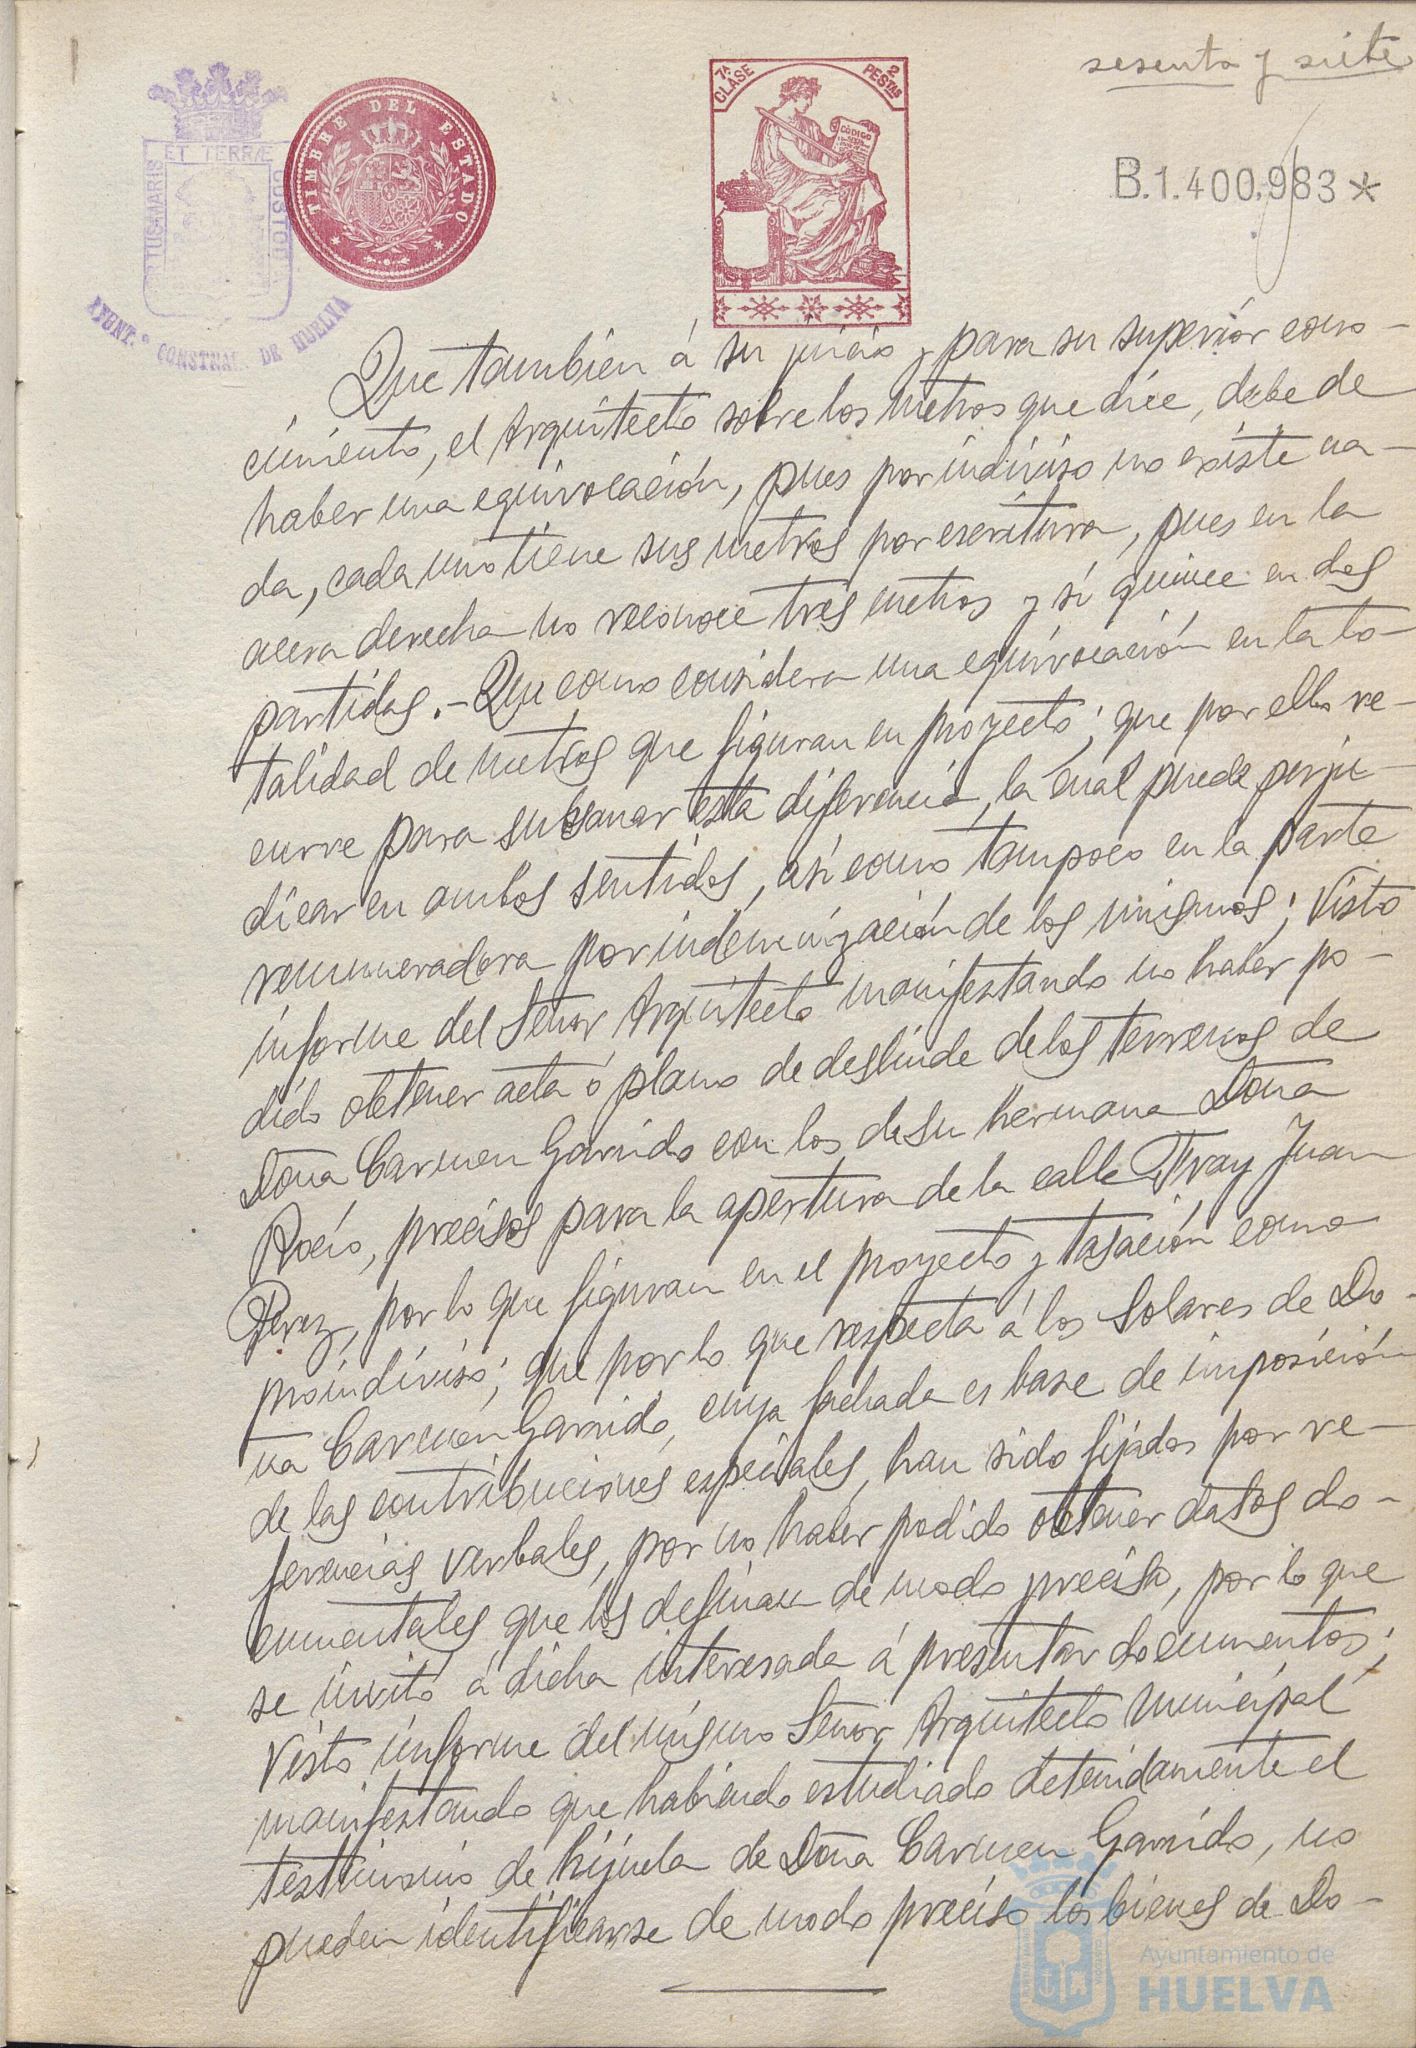 sesenta y siete
PORTUS MARIS
ET TERRÆ
CUSTODIA
AYUNT.º CONSTNAL. DE HUELVA
TIMBRE DEL ESTADO
7ª CLASE
2 PESTAS
CODIGO
B.1.400.983*
Que también á su juicio y para su superior cono-
cimiento, el Arquitecto sobre los metros que dice, debe de
haber una equivocación, pues por indiviso no existe na-
da, cada uno tiene sus metros por escritura, pues en la
acera derecha no reconoce tres metros y sí quince en dos
partidas.- Que como considera una equivocación en la to-
talidad de metros que figuran en proyecto; que por ello re-
curre para subsanar esta diferencia, la cual puede perju-
dicar en ambos sentidos, así como tampoco en la parte
remuneradora por indemnización de los mismos; Visto
informe del Señor Arquitecto manifestando no haber po-
dido obtener acta ó plano de deslinde de los terrenos de
Doña Carmen Garrido con los de su hermana Doña
Rocío, precisos para la apertura de la calle Fray Juan
Pérez, por lo que figuran en el proyecto y tasación como
proindiviso; que por lo que respecta á los Solares de Do-
ña Carmen Garrido, cuya fachada es base de imposición
de las contribuciones especiales, han sido fijados por re-
ferencias verbales, por no haber podido obtener datos do-
cumentales que los definan de modo preciso, por lo que
se invitó á dicha interesada á presentar documentos;
Visto informe del mismo Señor Arquitecto Municipal
manifestando que habiendo estudiado detenidamente el
testimonio de hijuela de Doña Carmen Garrido, no
pueden identificarse de modo preciso los bienes de Do-
Ayuntamiento de
HUELVA